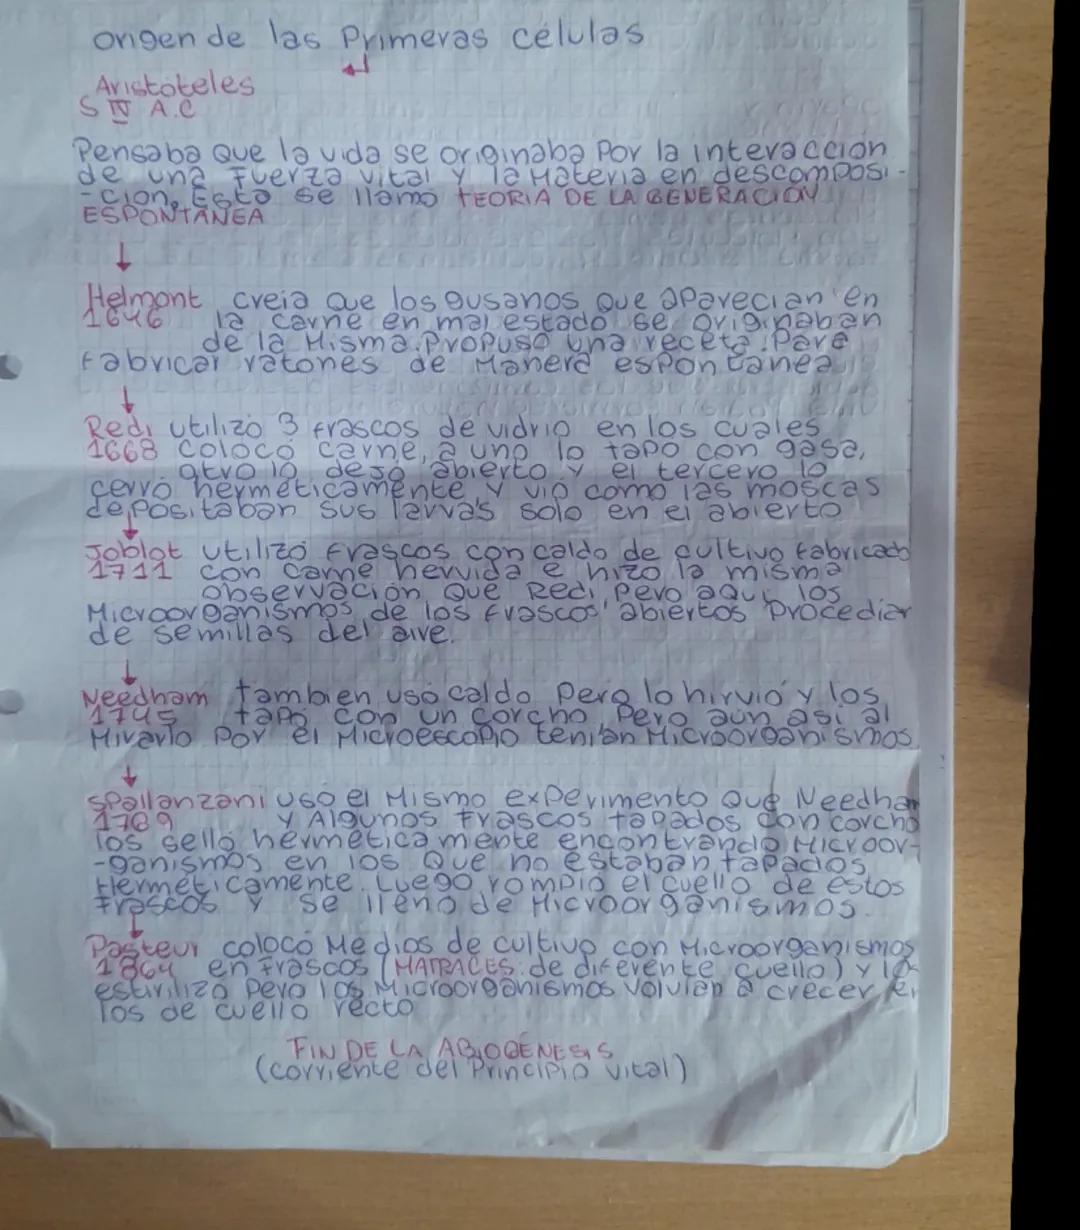 origen de las Primeras celulas
Aristóteles
S IV A.C
Pensaba que la vida se originaba por la interacción
de una Fuerza vital y la Materia en descomposi-
-cion, Esto se llamo TEORIA DE LA GENERACION
ESPONTANEA
Helmont creia que los gusanos que aparecian en
1646 la carne en mal estado se originaban
de la Misma. Propuso una receta Para
Fabricar ratones de Manera espontanea
Redi utilizo 3 frascos de vidrio en los cuales
1668 colocó carne, a uno lo tapo con gasa,
otro lo dejo abierto y el tercero lo
cerró herméticamente y vio como las moscas
depositaban sus larvas solo en el abierto
Joblot utilizó Frascos con caldo de cultivo fabricado
1711 con carne hervida e hizo la misma
observación que Redi pero aqui los
Microorganismos de los frascos abiertos procedian
de semillas del aire.
Needham tambien usó caldo Pero lo hirvió y los
1745 tapó con un corcho, Pero aun asi al
Mirarlo por el Microescopio tenian Microorganismos
Spallanzani usó el Mismo experimento que Needham
1769 y Algunos frascos tapados con corcho
los selló hermeticamente encontrando Microor-
-ganismos en los que no estaban tapados
Hermeticamente. Luego rompio el cuello de estos
Frascos y se lleno de Microorganismos.
Pasteur colocó Medios de cultivo con Microorganismos
1864 en frascos (MATRACES: de diferente cuello) y lo
estirilizó pero los Microorganismos volvian a crecer en
los de cuello recto
FIN DE LA ABIOGÉNESIS
(corriente del Principio vital)